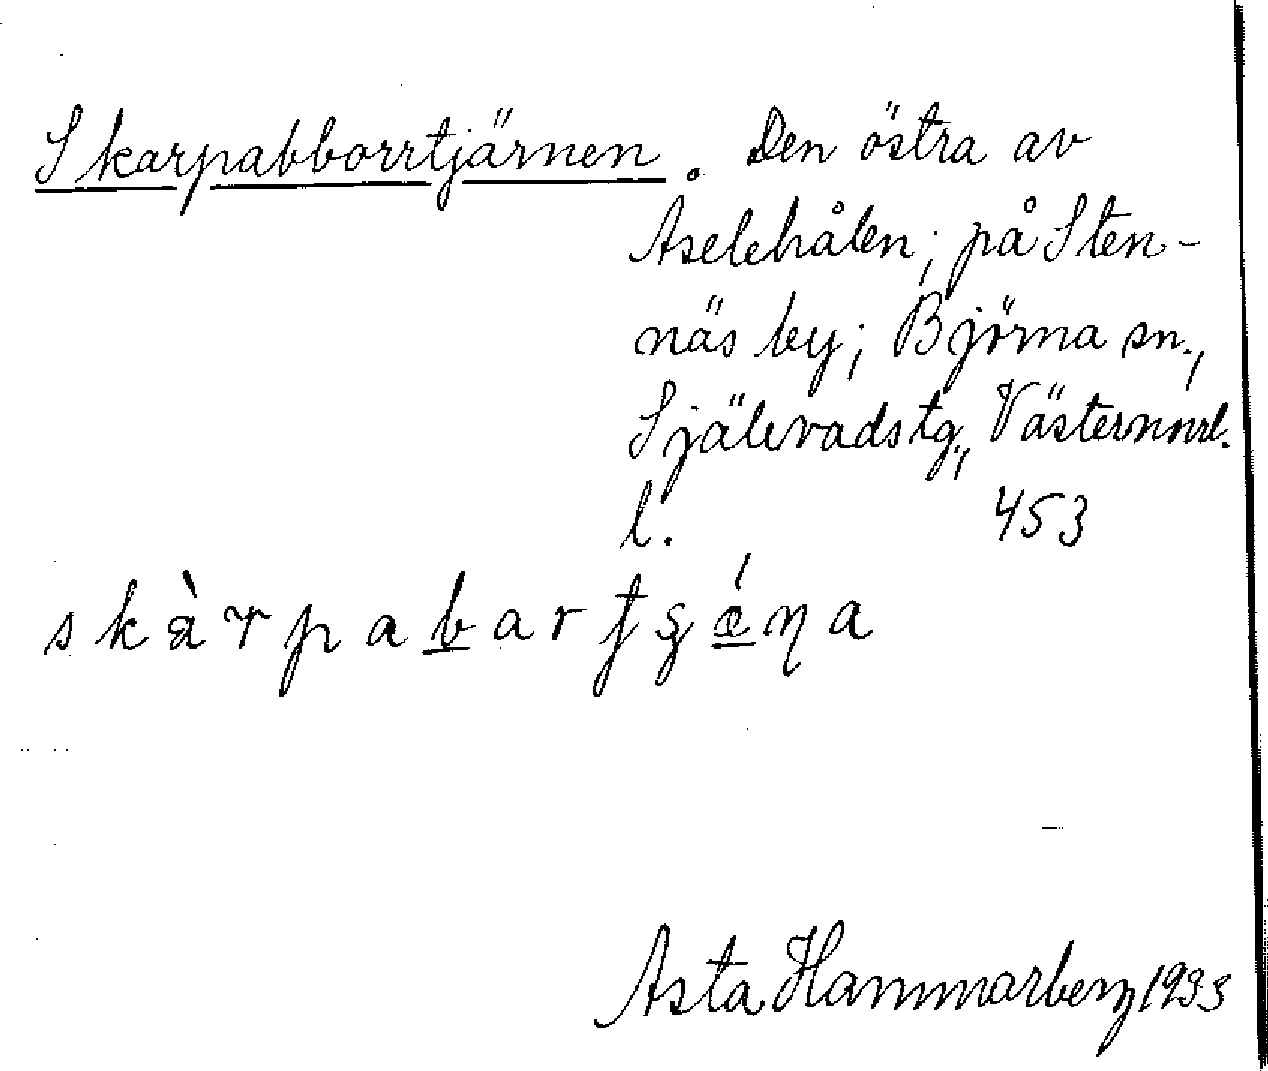 Skarpabborrtjärnen. Den östra av
Aselehålen; på Sten-
näs by; Björna sn.,
Själevads tg., Västernorrl.
l. 453
skàrpabartʂǽṇa
Asta Hammarberg 1933